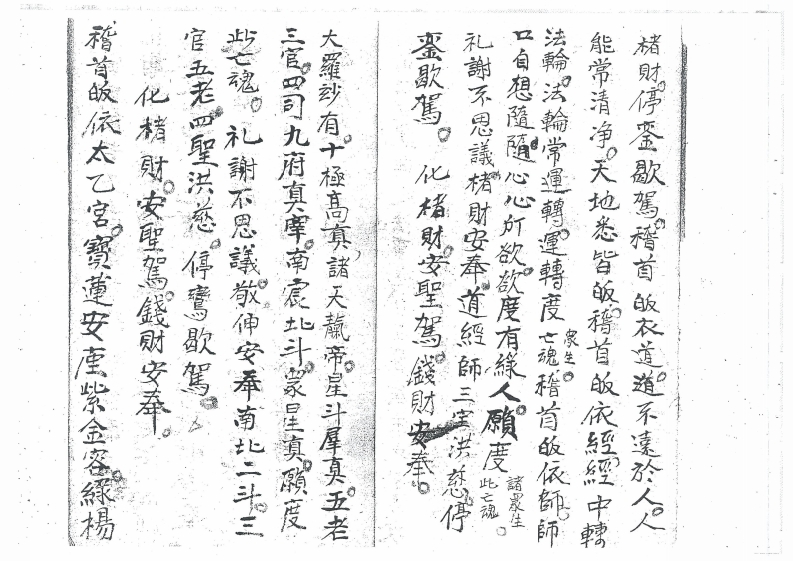 楮財。停鑾歇駕。稽首皈衣道。道不遠於人。人
能常清净。天地悉皆皈。稽首皈依經。經中轉
法輪。法輪常運轉。運轉度亡魂衆生。稽首皈依師。師
口自想隨。隨心心所欲。欲度有緣人。願度此亡魂諸衆生。
礼謝不思議。楮財安奉。道經師三宝洪慈。停
鑾歇駕。化楮財。安聖駕。錢財安奉。
大羅玅有。十極高真。諸天龍帝。星斗羣真。五老
三官。四司九府真宰。南宸北斗。衆星真。願度
此亡魂。礼謝不思議。敬伸安奉南北二斗。三
官五老。四聖洪慈。停鸞歇駕。
化楮財。安聖駕。錢財安奉。
稽首皈依太乙宮。寶蓮安座紫金容。緑楊